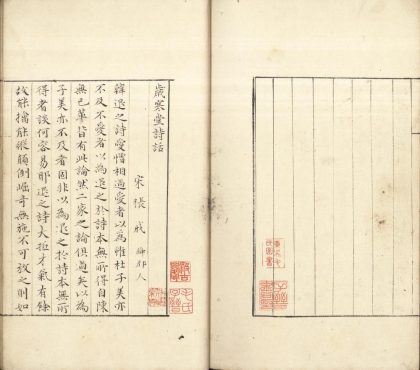 歲寒堂詩話
宋 張 戒 絳郡人
韓退之詩愛憎相過愛者以為雖杜子美亦
不及不愛者以為退之於詩本無所得自陳
無已軰皆有此論然二家之論俱過矣以為
子美亦不及者固非以為退之於詩本無所
得者談何容易耶退之詩大抵才氣有餘
故能擒能縱顛倒崛奇無施不可放之則如